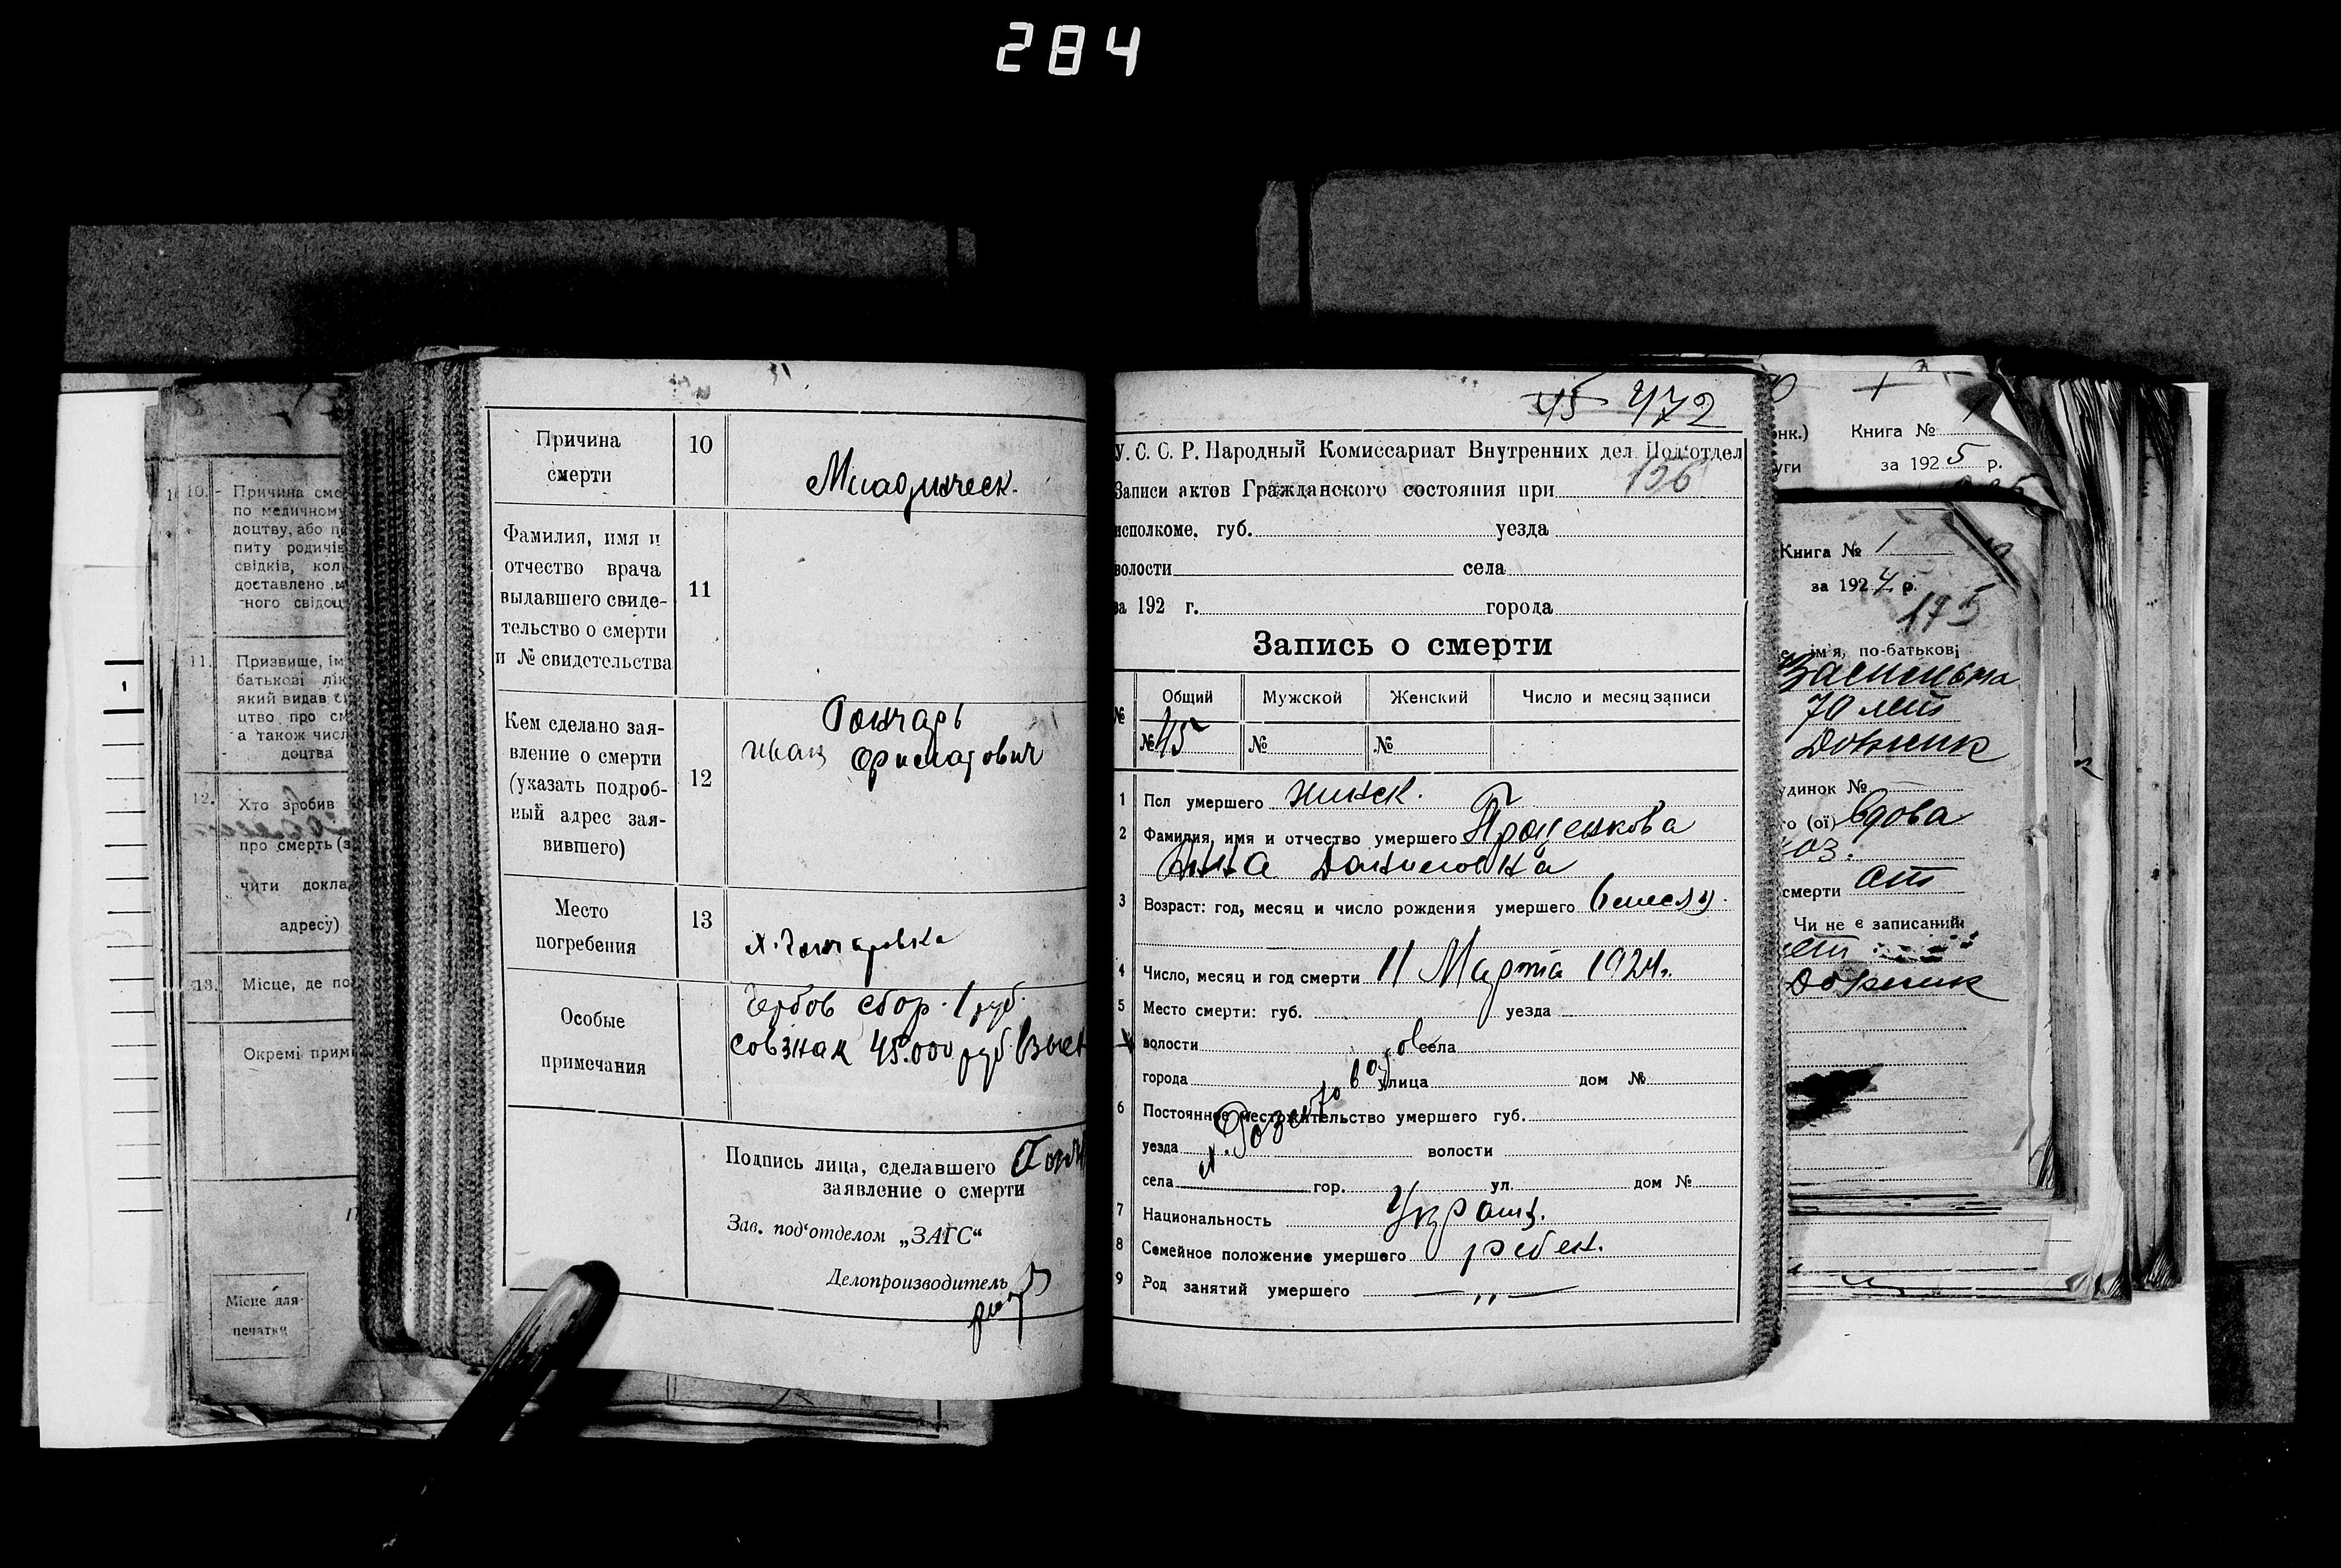 284
10. Причина сме
по медичному
доцтву, або п
питу родичів
свідків, кол
доставлено
ного свідоц
11. Призвище, ім
батькові лік
який видав
цтво про см
а також числ
доцтва
12. Хто зробив
про смерть
чити докла
адресу)
13. Місце, де по
Окремі прим
Місце для
печатки
Причина смерти 10
Младенческ.
Фамилия, имя и
отчество врача
выдавшего свиде-
тельство о смерти
и № свидетельства
11
Кем сделано зая-
вление о смерти
(указать подроб-
ный адрес зая-
вившего)
12
Гончарь
Иван Филатович
Место
погребения
13
х. Гончаровка
Особые
примечания
Гербов сбор. 1 руб.
совзнак 45.000 руб.
Подпись лица, сделавшего
заявление о смерти
Зав. под'отделом „ЗАГС“
Делопроизводитель
45 472
У. С. С. Р. Народный Комиссариат Внутренних дел Под'отдел
Записи актов Гражданского состояния при 156
исполкоме, губ. уезда
волости села
за 192 г. города
Запись о смерти
№ Общий Мужской Женский Число и месяц записи
№ 45 № №
1 Пол умершего женск.
2 Фамилия, имя и отчество умершего Проценкова
Анна Даниловна
3 Возраст: год, месяц и число рождения умершего 6 месяц.
4 Число, месяц и год смерти 11 Марта 1924.
5 Место смерти: губ. уезда
волости села
города улица дом №
6 Постоянное местожительство умершего губ.
уезда волости
села гор. ул. дом №
7 Национальность Украин.
8 Семейное положение умершего ребен.
9 Род занятий умершего — „ —
нк.) Книга №
уги за 1925 р.
Книга № 1
за 1924 р.
175
ім'я, по-батькові
70 лет
удинок №
го (ої) вдова
смерти
Чи не є записаний